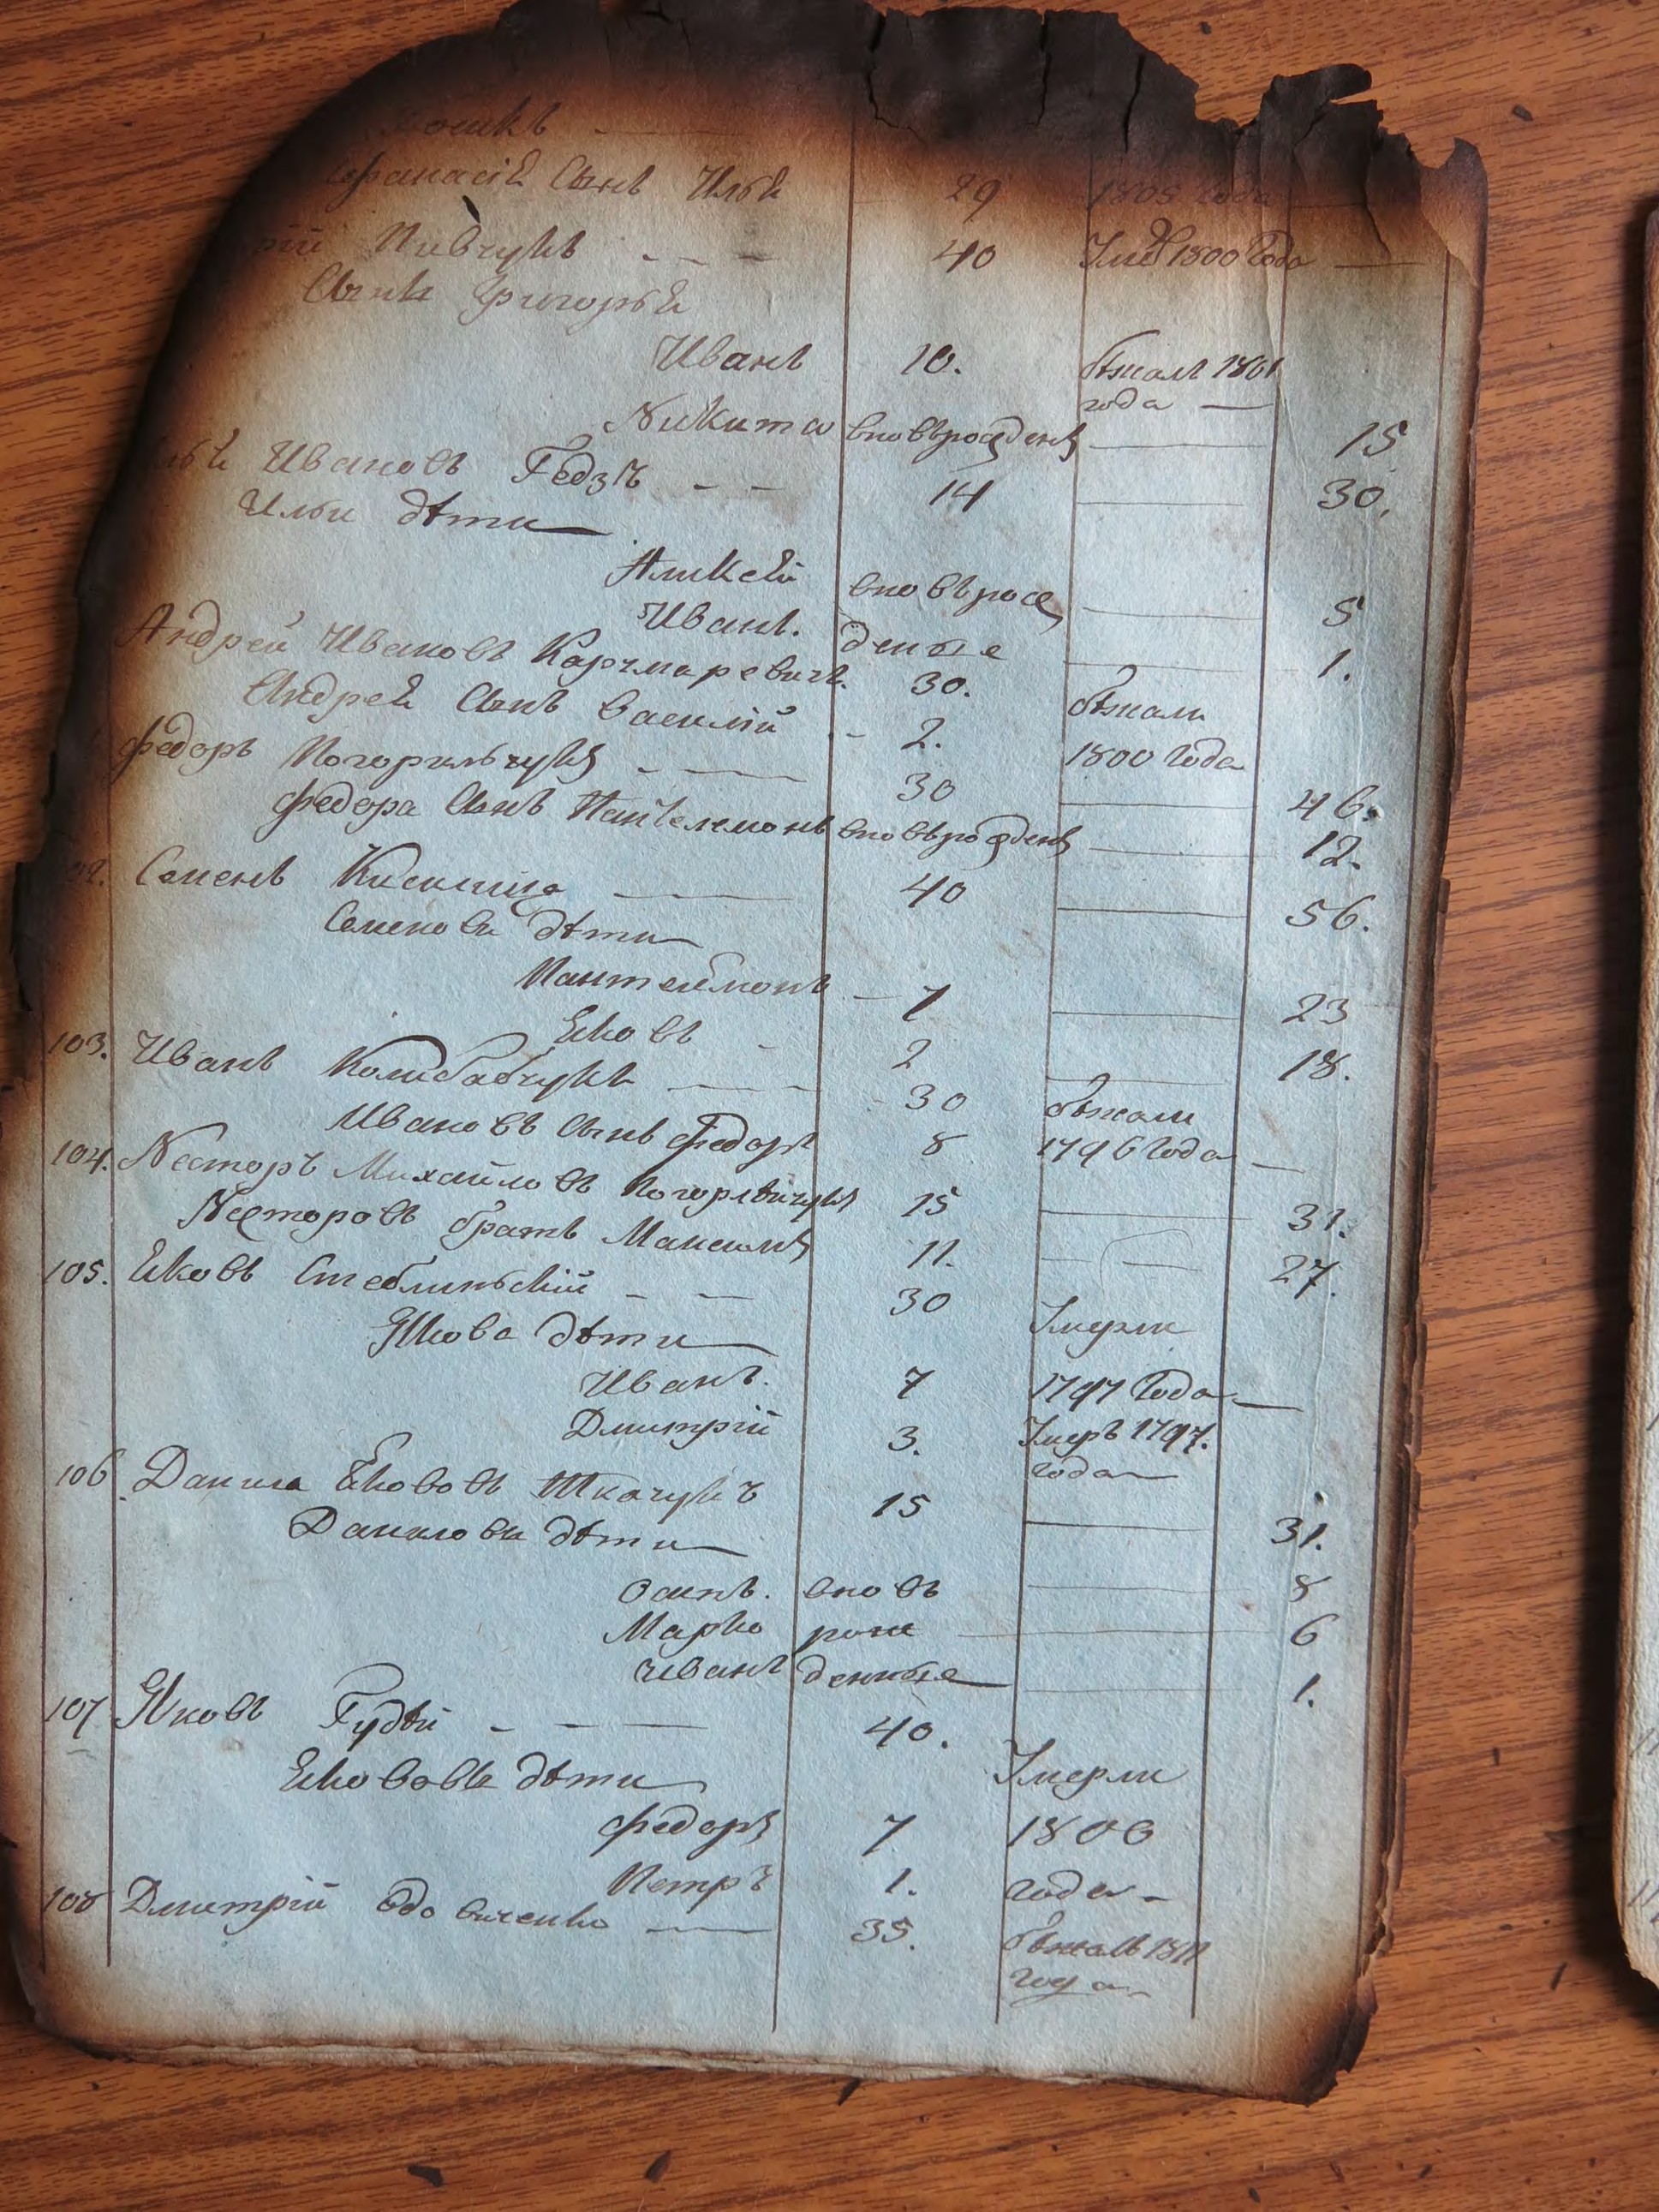 Афанасій Сынъ Илья 29 1805 года
Пивчукъ 40 Умеръ 1800 Года
Сынъ Григорей
Иванъ 10. бѣжалъ 1801
года
Никита вновьрожденъ 15
Ивановъ Гедзъ 14 30.
Ильи дѣти
Аликсѣй вновьрож 5
Иванъ. денные 1.
Андрей Ивановъ Карчмаревичъ. 30. бѣжали
Андрей Сынъ Василій 2. 1800 Года
Федоръ Погорильчукъ 30 46.
Федора Сынъ Пантелемонъ вновьрожденъ 12.
Семенъ 40 56.
Семеновы дѣти
Пантелимонъ 7 23
Яковъ 2 18.
103. Иванъ Колибабчукъ 30 бѣжали
Ивановъ Сынъ Федоръ 8 1796 Года
104. Несторъ Михайловъ 15 31.
Несторовъ братъ Максимъ 11. 27.
105. Яковъ Стеблинскій 30 Умерли
Якова дѣти
Иванъ. 7 1797 Года
Дмитрій 3. Умеръ 1797.
года
106. Данила Якововъ Ткачукъ 15 31.
Даниловы дѣти
Осипъ. вновь 8
Марко рож 6
Иванъ денные 1.
107 Яковъ Гудзій 40. Умерли
Якововы дѣти
Федоръ 7 1800
Петръ 1. года
108 Дмитрій Вдовиченко 35. бѣжалъ 1811
года